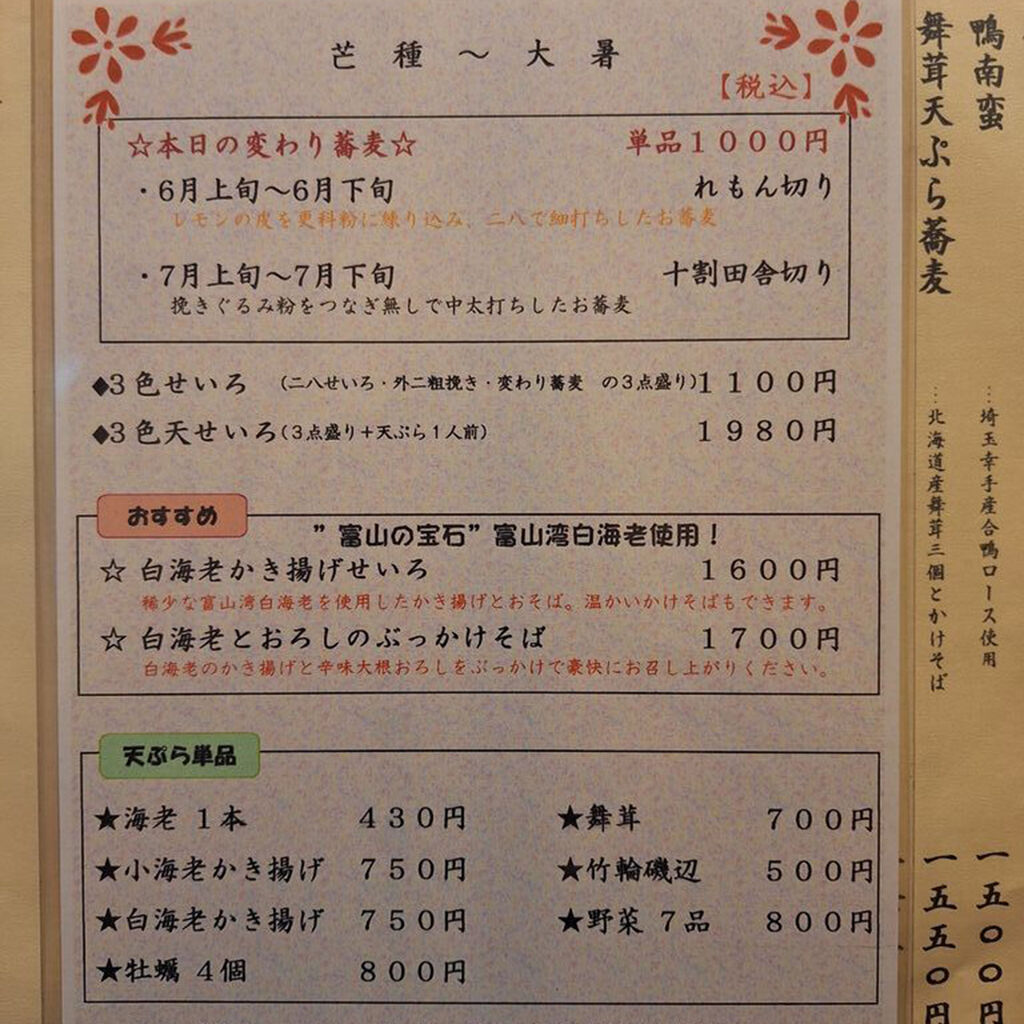 芒種～大暑
【税込】
☆本日の変わり蕎麦☆ 単品１０００円
・6月上旬～6月下旬 れもん切り
レモンの皮を更科粉に練り込み、二八で細打ちしたお蕎麦
・7月上旬～7月下旬 十割田舎切り
挽きぐるみ粉をつなぎ無しで中太打ちしたお蕎麦
◆3色せいろ （二八せいろ・外二粗挽き・変わり蕎麦 の３点盛り）１１００円
◆3色天せいろ（３点盛り＋天ぷら１人前） １９８０円
おすすめ
”富山の宝石”富山湾白海老使用！
☆ 白海老かき揚げせいろ １６００円
稀少な富山湾白海老を使用したかき揚げとおそば。温かいかけそばもできます。
☆ 白海老とおろしのぶっかけそば １７００円
白海老のかき揚げと辛味大根おろしをぶっかけで豪快にお召し上がりください。
天ぷら単品
★海老 １本 ４３０円
★小海老かき揚げ ７５０円
★白海老かき揚げ ７５０円
★牡蠣 ４個 ８００円
★舞茸 ７００円
★竹輪磯辺 ５００円
★野菜 ７品 ８００円
鴨南蛮 …埼玉幸手産合鴨ロース使用 一五〇〇円
舞茸天ぷら蕎麦 …北海道産舞茸三個とかけそば 一五五〇円